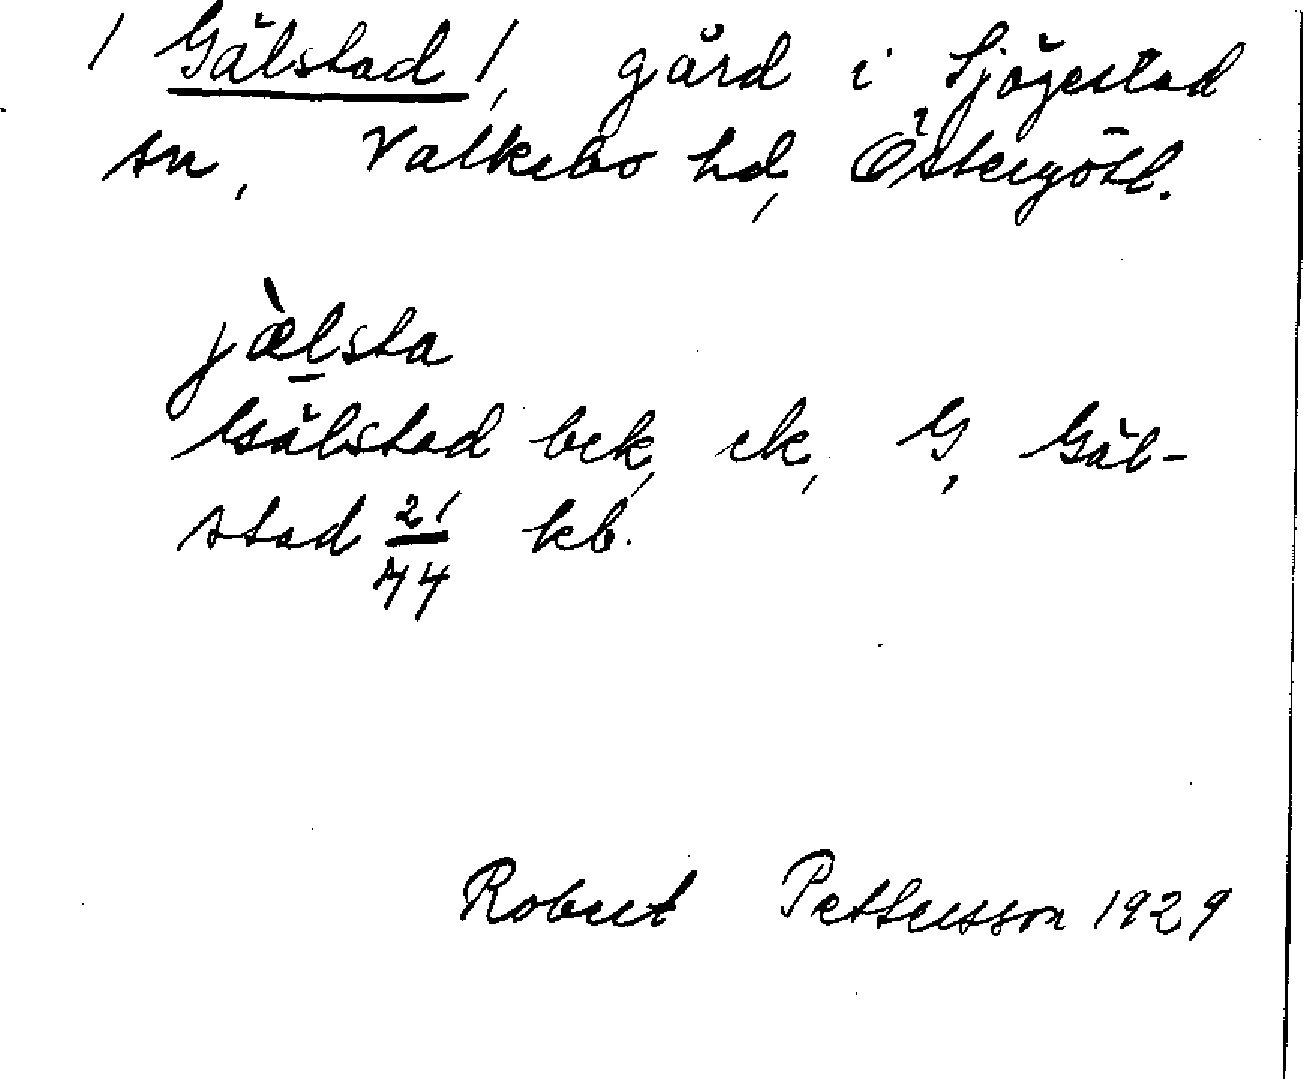 / Gälstad /, gård i Sjögestad
sn, Valkebo hd, Östergötl.
jæ̀lsta
Gälstad bek, ek, G, Gäl-
stad 21/74 kb.
Robert Pettersson 1929